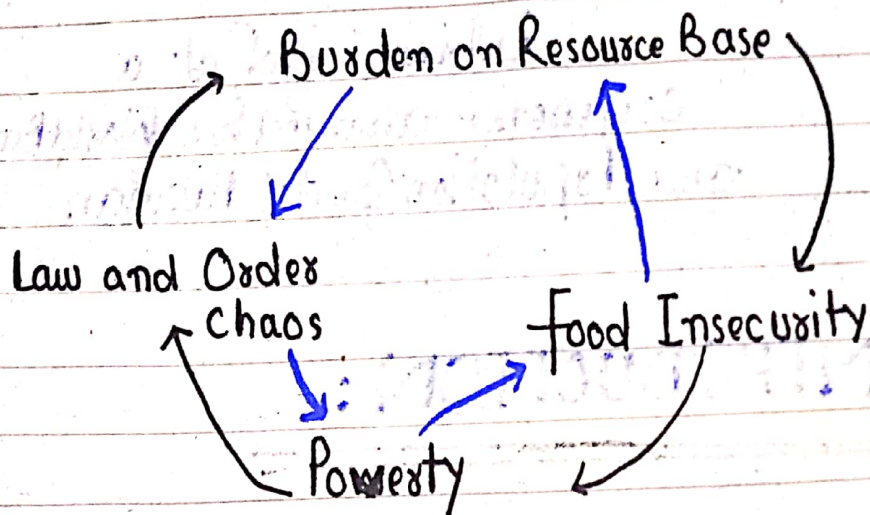 Burden on Resource Base
Law and Order
Chaos
Food Insecurity
Powerty